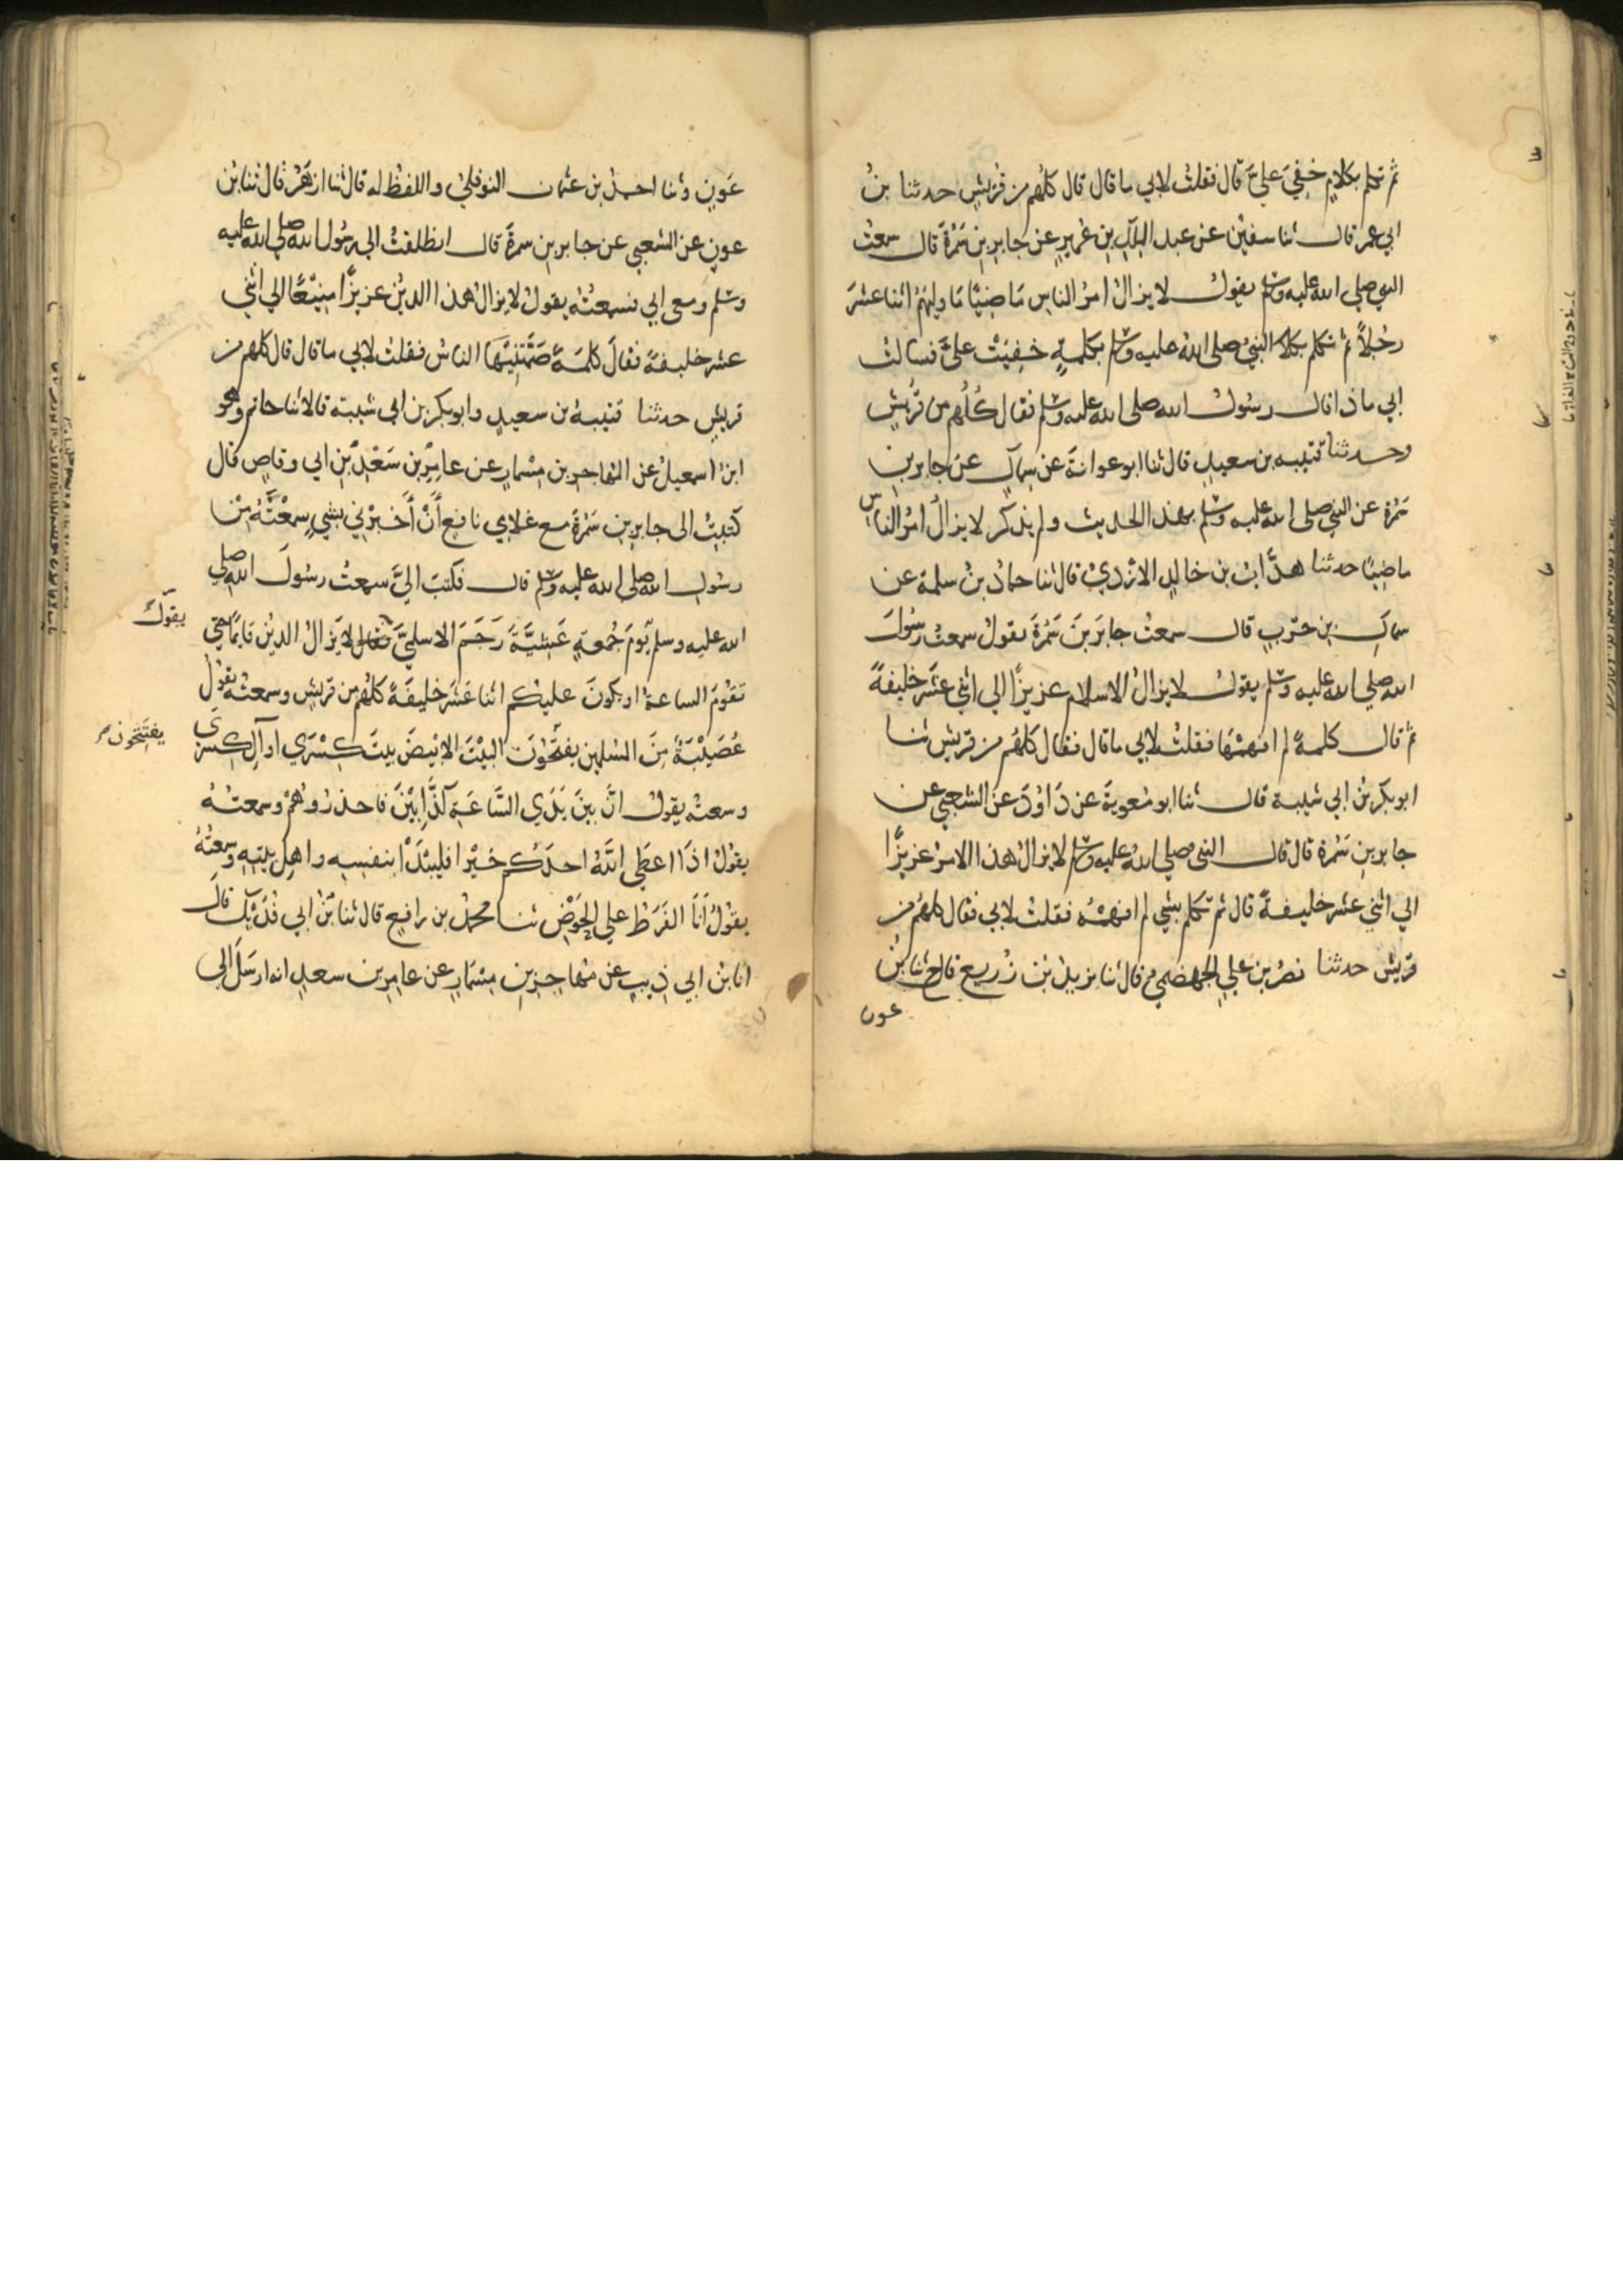 ثم تكلم بكلام خفي علي قال فقلت لابي ما قال قال كلهم من قريش حدثنا بن
ابي عمر قال ثنا سفين عن عبد الملك بن عمير عن جابر بن سمرة قال سمعت
النبي صلى الله عليه وسلم يقول لا يزال امر الناس ماضيا ما وليهم اثنا عشر
رجلا ثم تكلم النبي صلى الله عليه وسلم بكلمة خفيت علي فسالت
ابي ماذا قال رسول الله صلى الله عليه وسلم فقال كلهم من قريش
وحدثنا قتيبه بن سعيد قال ثنا ابو عوانة عن سماك عن جابر بن
سمرة عن النبي صلى الله عليه وسلم بهذا الحديث ولم يذكر لا يزال امر الناس
ماضيا حدثنا هداب بن خالد الازدي قال ثنا حماد بن سلمة عن
سماك بن حرب قال سمعت جابر بن سمرة يقول سمعت رسول
الله صلي الله عليه وسلم يقول لا يزال الاسلام عزيزا الي اثني عشر خليفة
ثم قال كلمة لم افهمها فقلت لابي ما قال فقال كلهم من قريش ثنا
ابو بكر بن ابي شيبة قال ثنا ابو معوية عن داود عن الشعبي عن
جابر بن سمرة قال قال النبي صلي الله عليه وسلم لا يزال هذا الامر عزيزا
الي اثني عشر خليفة قال ثم تكلم بشي لم افهمه فقلت لابي فقال كلهم من
قريش حدثنا نصر بن علي الجهضمي قال ثنا يزيد بن زريع قال ح ثنا بن
عون
عون وثنا احمد بن عثمان النوفلي واللفظ له قال ثنا ازهر قال ثنا بن
عون عن الشعبي عن جابر بن سمرة قال انطلقت الي رسول الله صلي الله عليه
وسلم ومعي ابي فسمعته يقول لا يزال هذا الدين عزيزا منيعا الي اثني
عشر خليفة فقال كلمة صمتنيها الناس فقلت لابي ما قال قال كلهم من
قريش حدثنا قتيبة بن سعيد وابو بكر بن ابي شيبة قالا ثنا حاتم وهو
ابن اسمعيل عن المهاجر بن مسمار عن عامر بن سعد بن ابي وقاص قال
كتبت الى جابر بن سمرة مع غلامي نافع أن أخبرني بشي سمعته من
رسول الله صلى الله عليه وسلم قال فكتب الي سمعت رسول الله صلي
الله عليه وسلم يوم جمعة عشية رجم الاسلمي فقال لا يزال الدين قايما حتي
يقول
تقوم الساعة او يكون عليكم اثنا عشر خليفة كلهم من قريش وسمعته يقول
عصيبة من المسلمين يفتحون البيت الابيض بيت كسري او آل كسرى
يفتتحون
وسمعته يقول ان بين يدي الساعة كذابين فاحذروهم وسمعته
يقول اذا اعطي الله احدكم خيرا فليبدأ بنفسه واهل بيته وسمعته
يقول أنا الفرط علي الحوض ثنا محمد بن رافع قال ثنا بن ابي فديك قال
انا بن ابي ذيب عن مهاجر بن مسمار عن عامر بن سعد انه ارسل الى